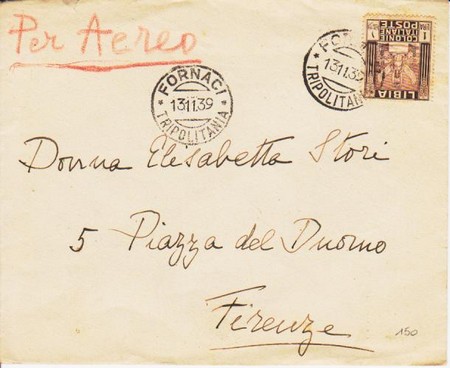 Per Aereo
FORNACI
13.11.39
TRIPOLITANIA
FORNACI
13.11.39
TRIPOLITANIA
1 POSTE 1
COLONIE ITALIANE
LIBIA
Donna Elisabetta Stori
5 Piazza del Duomo
Firenze
150